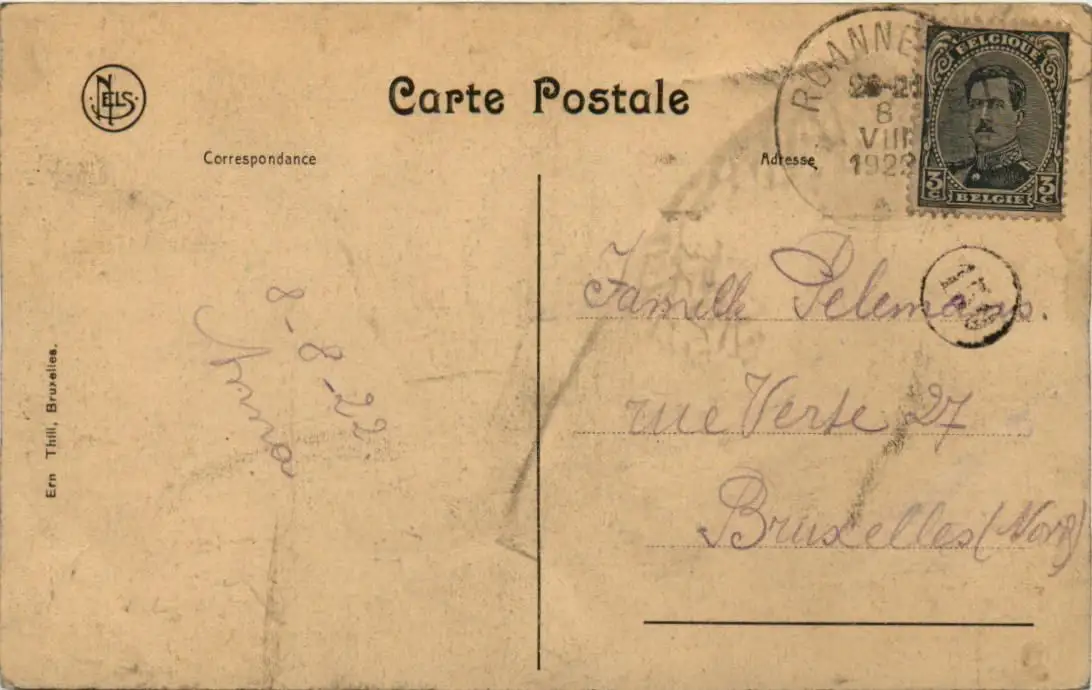 NELS
Carte Postale
Correspondance
Adresse
ROANNE
20-21
8
VIII
1922
BELGIQUE
3c 3c
BELGIE
Famille Pelemans.
rue Verte 27
Bruxelles (Nord)
8-8-22
Ern Thill, Bruxelles.